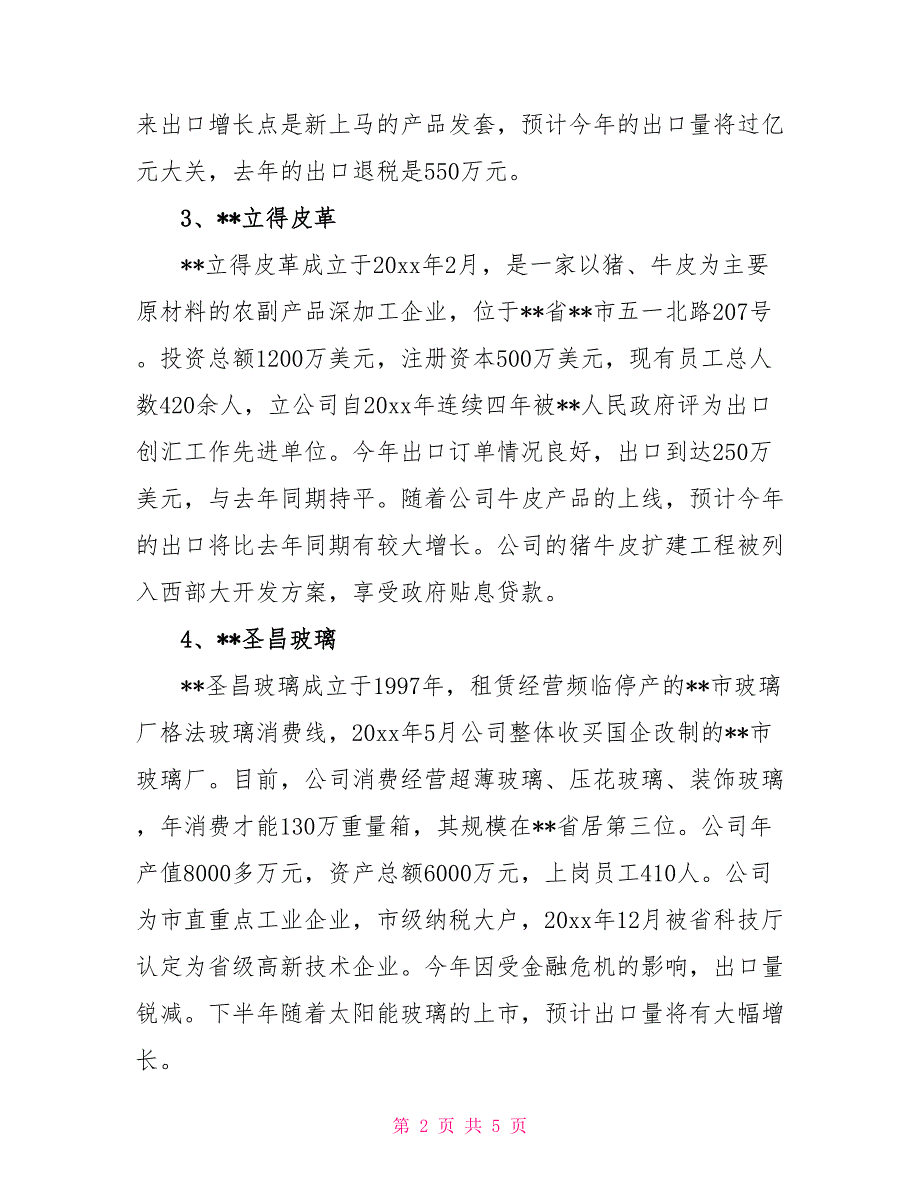 来出口增长点是新上马的产品发套，预计今年的出口量将过亿
元大关，去年的出口退税是550万元。
3、**立得皮革
**立得皮革成立于20xx年2月，是一家以猪、牛皮为主要
原材料的农副产品深加工企业，位于**省**市五一北路207号
。投资总额1200万美元，注册资本500万美元，现有员工总人
数420余人，立公司自20xx年连续四年被**人民政府评为出口
创汇工作先进单位。今年出口订单情况良好，出口到达250万
美元，与去年同期持平。随着公司牛皮产品的上线，预计今年
的出口将比去年同期有较大增长。公司的猪牛皮扩建工程被列
入西部大开发方案，享受政府贴息贷款。
4、**圣昌玻璃
**圣昌玻璃成立于1997年，租赁经营频临停产的**市玻璃
厂格法玻璃消费线，20xx年5月公司整体收买国企改制的**市
玻璃厂。目前，公司消费经营超薄玻璃、压花玻璃、装饰玻璃
，年消费才能130万重量箱，其规模在**省居第三位。公司年
产值8000多万元，资产总额6000万元，上岗员工410人。公司
为市直重点工业企业，市级纳税大户，20xx年12月被省科技厅
认定为省级高新技术企业。今年因受金融危机的影响，出口量
锐减。下半年随着太阳能玻璃的上市，预计出口量将有大幅增
长。
第 2 页 共 5 页